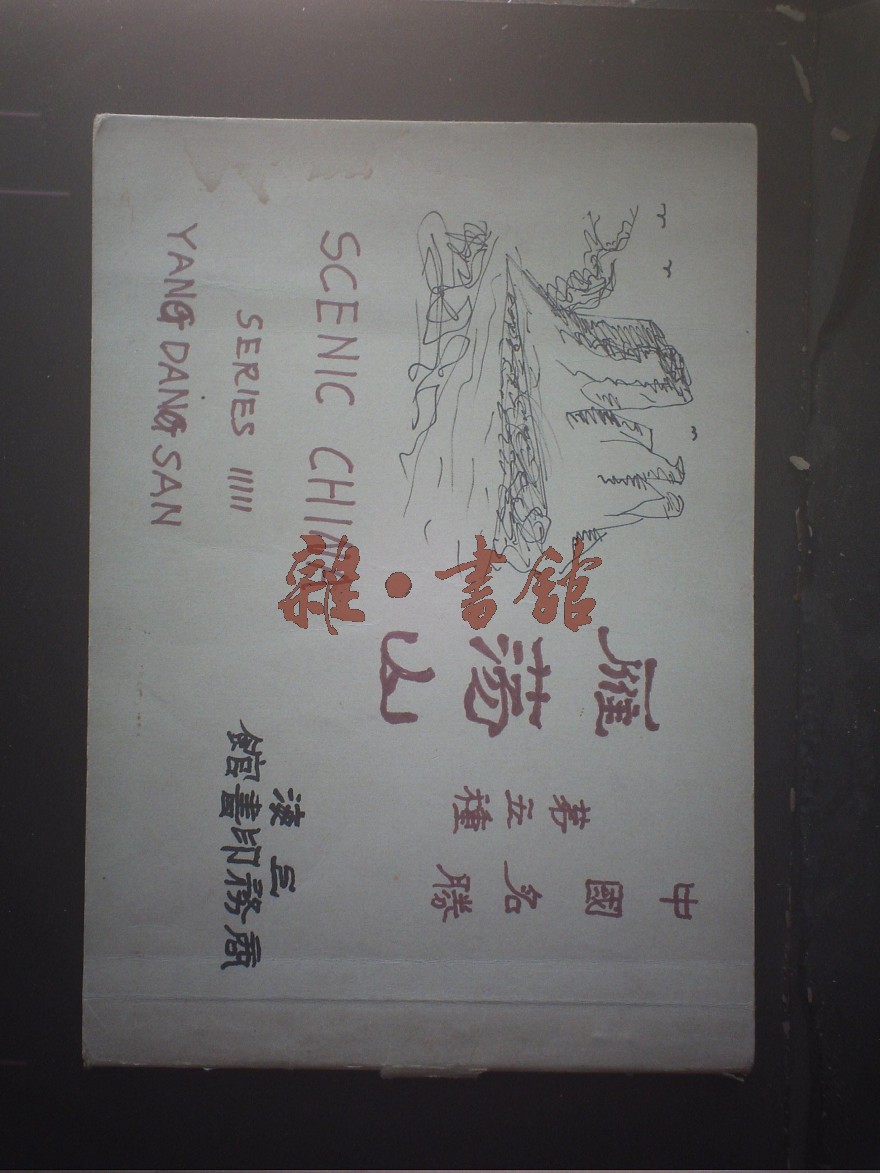 中國名勝
第五種
雁蕩山
館書印務商
SCENIC CHINA
SERIES 11111
YANG DANG SAN
雜·書館